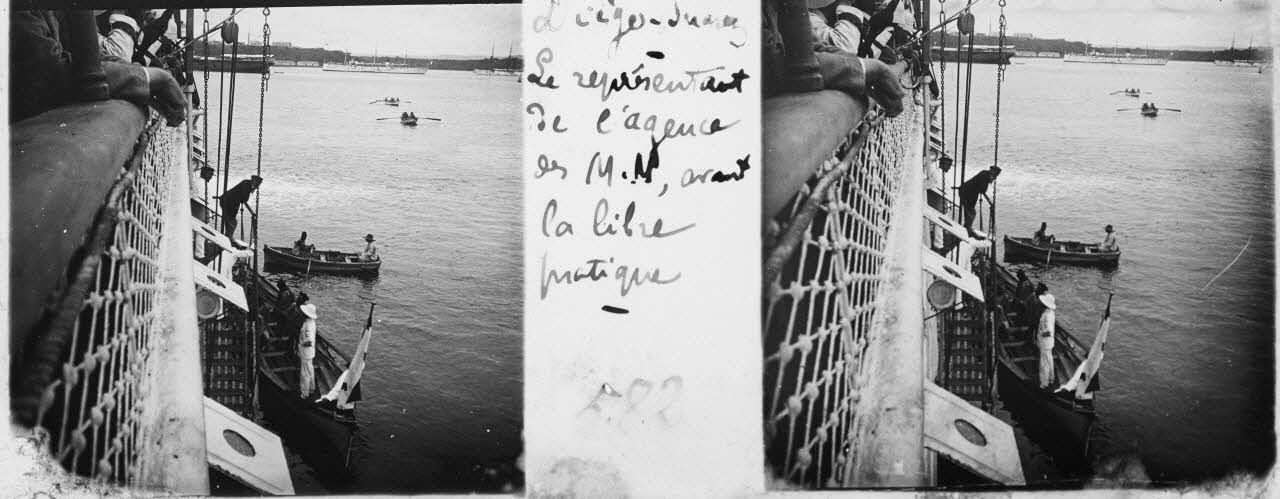 Diégo-Suarez
Le représentant
de l'agence
des M.M, avant
la libre
pratique
282